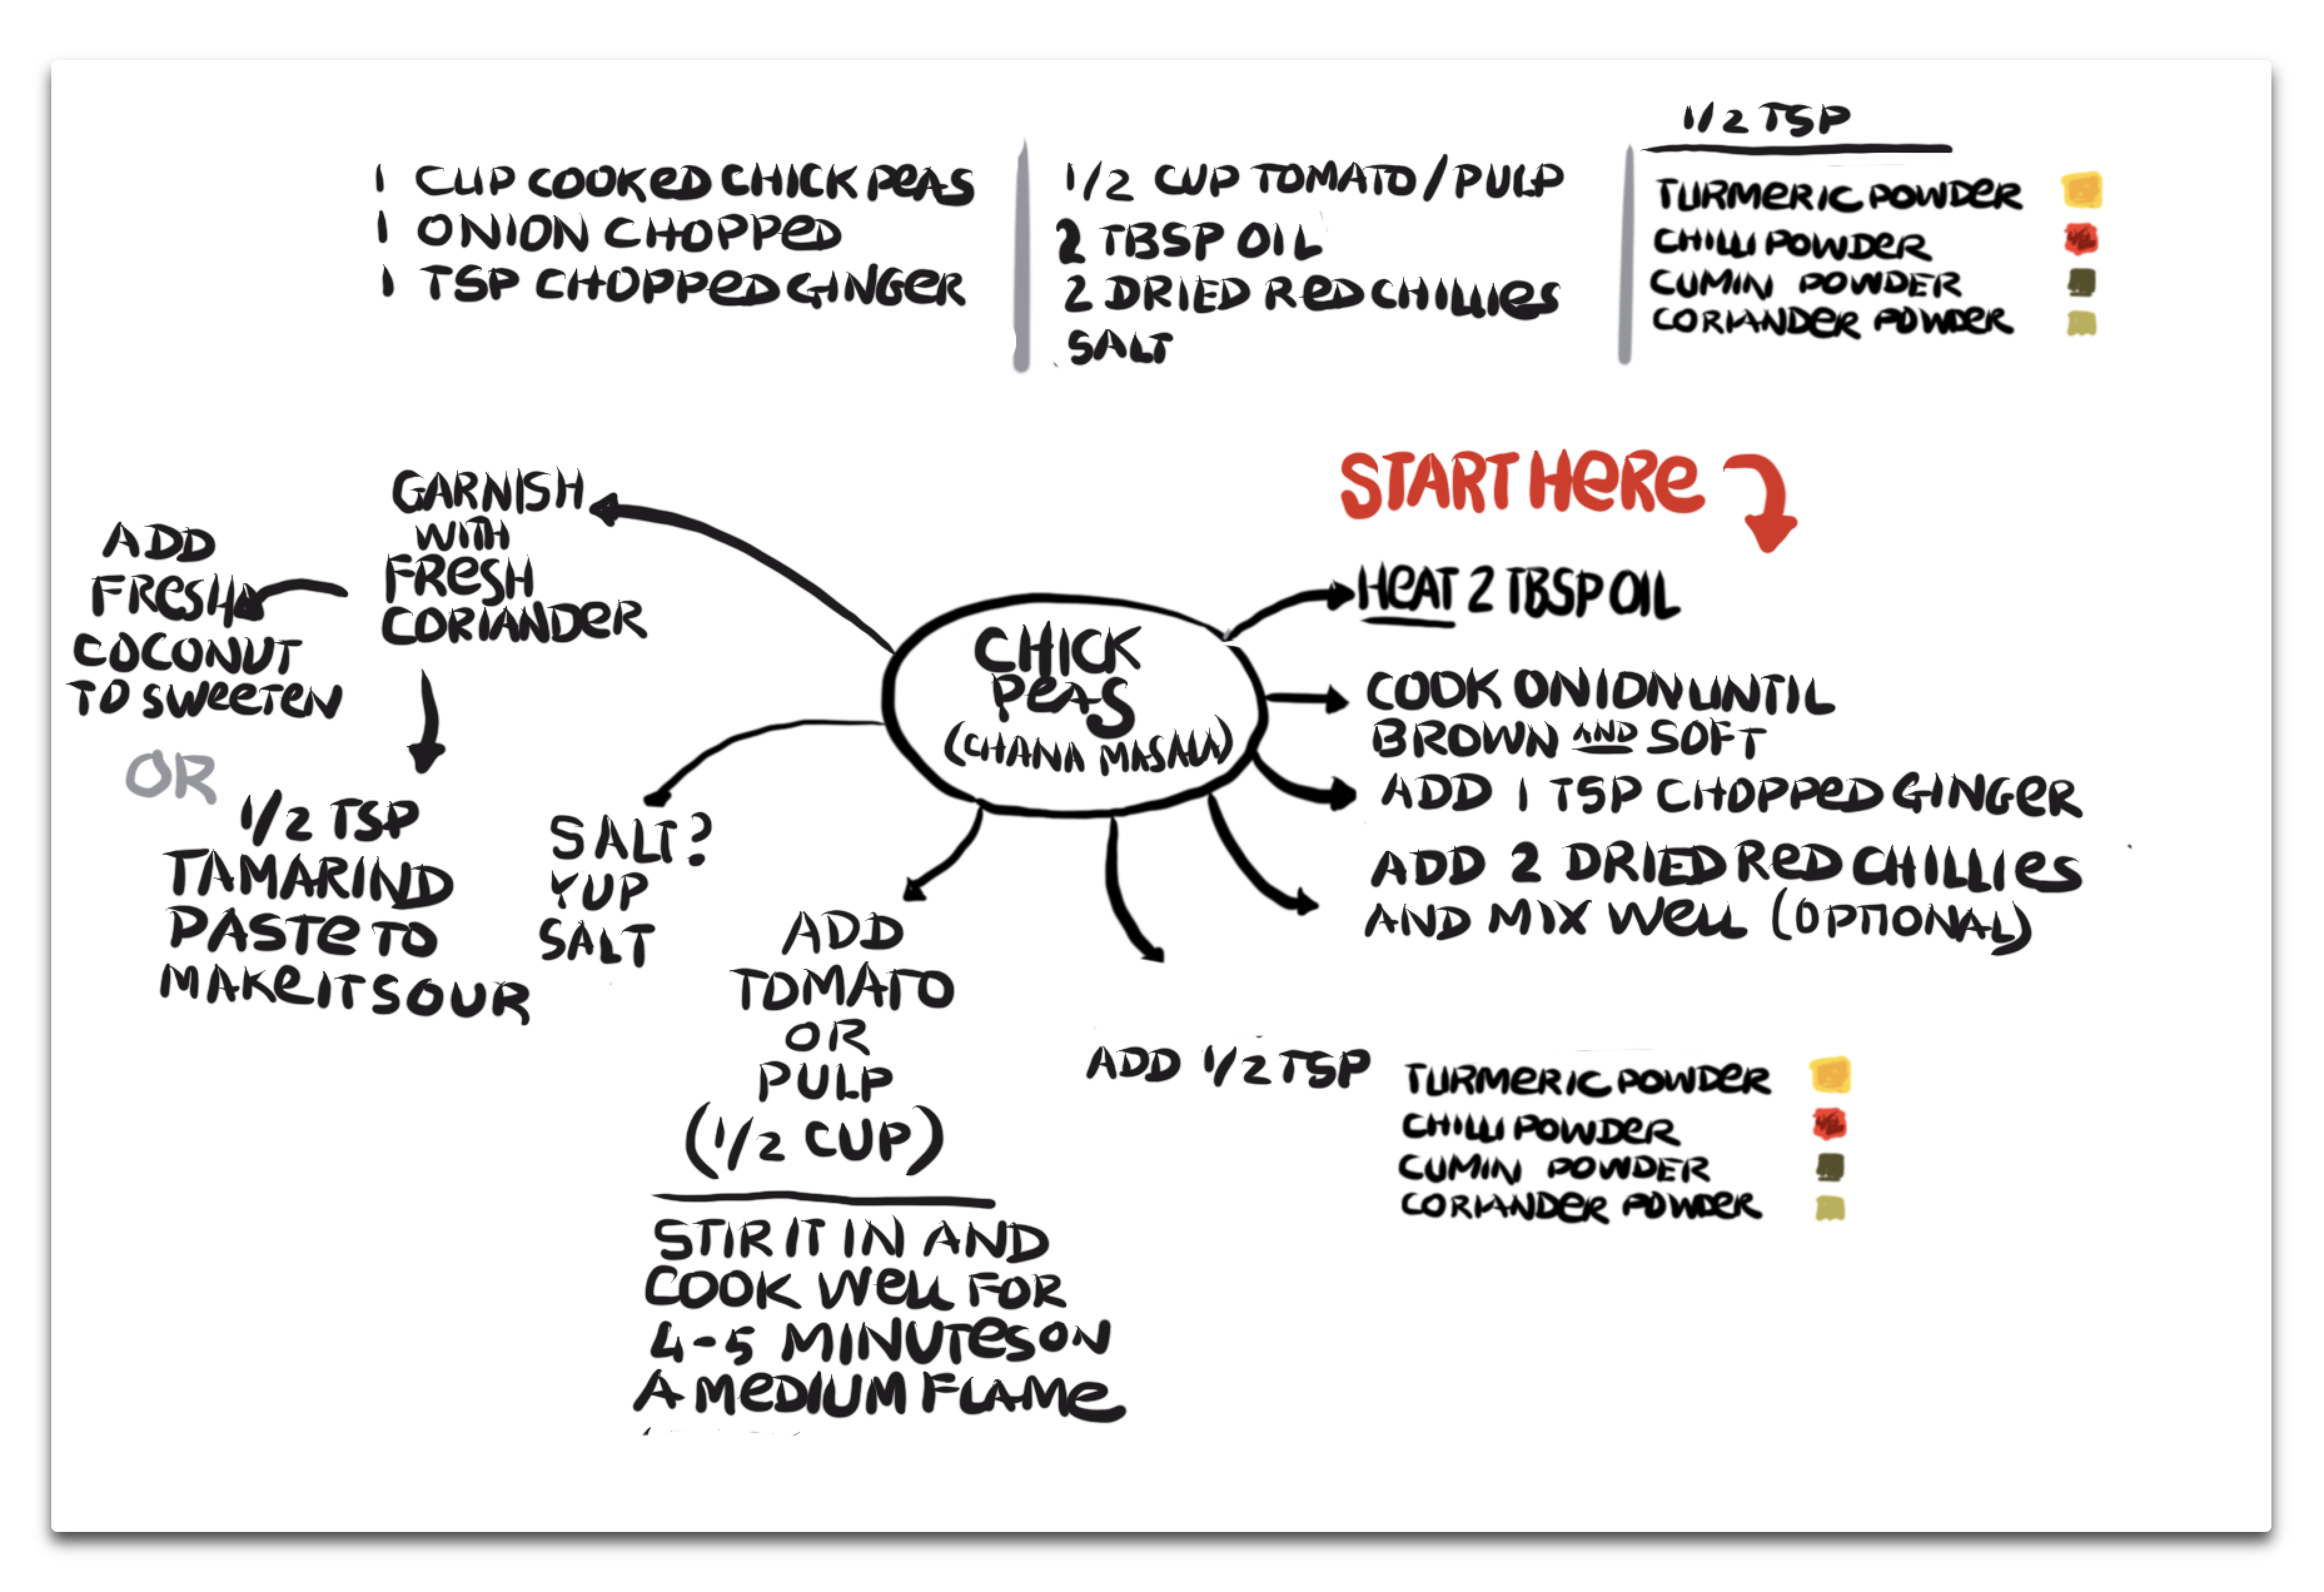 1 CUP COOKED CHICK PEAS
1 ONION CHOPPED
1 TSP CHOPPED GINGER
1/2 CUP TOMATO/PULP
2 TBSP OIL
2 DRIED RED CHILLIES
SALT
1/2 TSP
TURMERIC POWDER
CHILLI POWDER
CUMIN POWDER
CORIANDER POWDER
START HERE
HEAT 2 TBSP OIL
COOK ONION UNTIL
BROWN AND SOFT
ADD 1 TSP CHOPPED GINGER
ADD 2 DRIED RED CHILLIES
AND MIX WELL (OPTIONAL)
CHICK
PEAS
(CHANA MASALA)
ADD 1/2 TSP
TURMERIC POWDER
CHILLI POWDER
CUMIN POWDER
CORIANDER POWDER
ADD
TOMATO
OR
PULP
(1/2 CUP)
STIR IT IN AND
COOK WELL FOR
4-5 MINUTES ON
A MEDIUM FLAME
SALT?
YUP
SALT
GARNISH
WITH
FRESH
CORIANDER
ADD
FRESH
COCONUT
TO SWEETEN
OR
1/2 TSP
TAMARIND
PASTE TO
MAKE IT SOUR